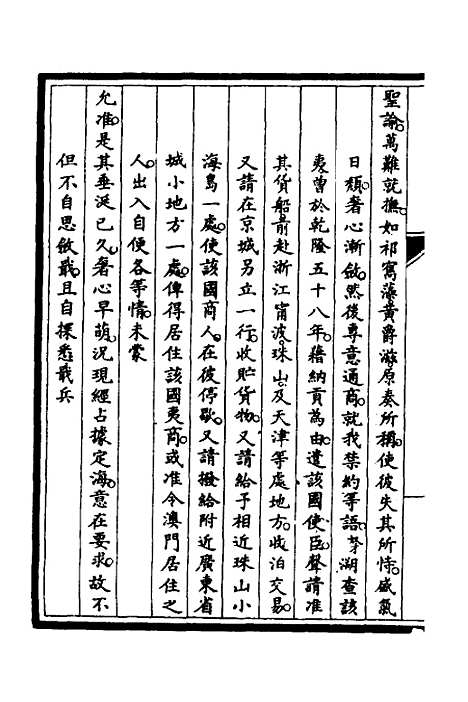 聖諭。萬難就撫。如祁寯藻黃爵滋原奏所稱。使彼失其所恃。盛氣
日頹。奢心漸斂。然後專意通商。就我禁約等語。努溯查該
夷曾於乾隆五十八年。藉納貢為由。遣該國使臣。聲請准
其貨船前赴浙江甯波。珠山。及天津等處地方。收泊交易。
又請在京城另立一行。收貯貨物。又請給予相近珠山小
海島一處。使該國商人。在彼停歇。又請撥給附近廣東省
城小地方一處。俾得居住該國夷商。或准令澳門居住之
人。出入自便各等情。未蒙
允准。是其垂涎已久。奢心早萌。況現經占據定海。意在要求。故不
但不自思斂戢。且自探悉戢兵